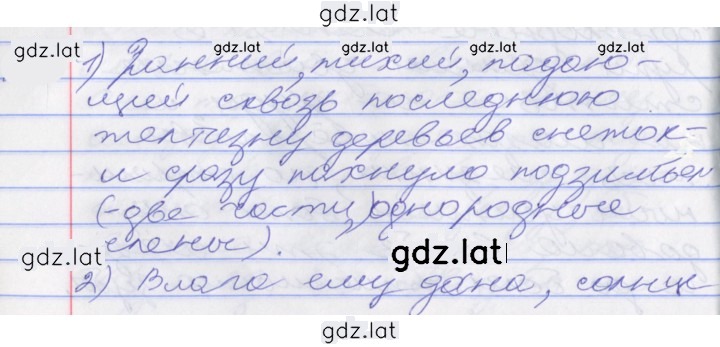 gdz.lat
gdz.lat gdz.lat gdz.lat gdz.lat
1) Ранний, тихий, падаю-
щий сквозь последнюю
желтизну деревьев снежок-
и сразу пахнуло подзимьем
(-две части, однородные
члены).
gdz.lat gdz.lat
2) Влага ему дана, солнце
gdz.lat gdz.lat